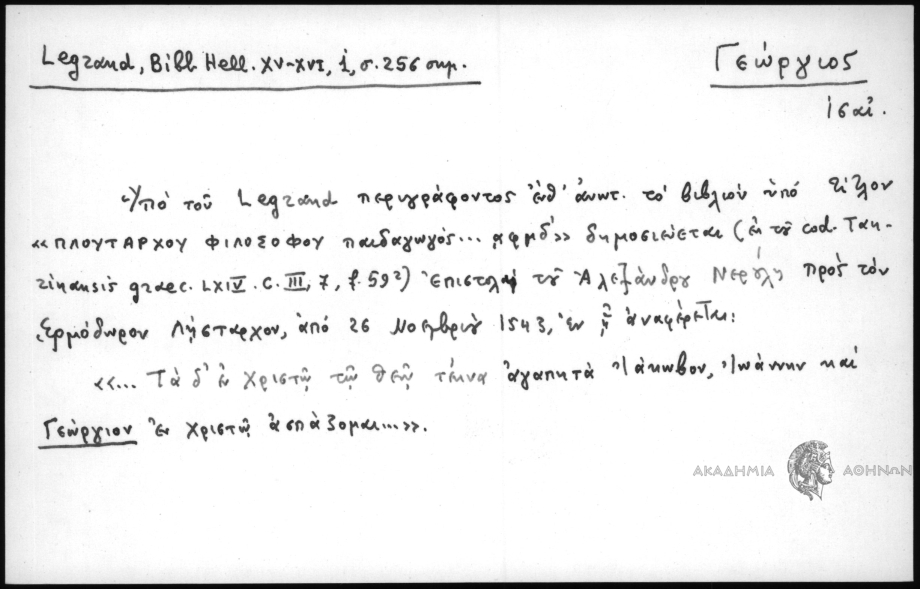 Legrand, Bibl. Hell. XV-XVI, 1, σ. 256 σημ.
Γεώργιος
ισαι.
Ὑπὸ τοῦ Legrand περιγράφοντος ἐνθ' ἀνωτ. τὸ βιβλίον ὑπὸ τίτλον
«ΠΛΟΥΤΑΡΧΟΥ ΦΙΛΟΣΟΦΟΥ παιδαγωγός... ͵αφμδ» δημοσιεύεται (ἐκ τοῦ cod. Tau-
rinensis graec. LXIV. C. III, 7, f. 59²) ἐπιστολὴ τοῦ Ἀλεξάνδρου Νερούλη πρὸς τὸν
Ἑρμόδωρον Λήσταρχον, ἀπὸ 26 Νοεμβρίου 1543, ἐν ᾗ ἀναφέρεται:
«... Τὰ δ' ἐν Χριστῷ τῷ θεῷ τέκνα ἀγαπητὰ Ἰάκωβον, Ἰωάννην καὶ
Γεώργιον ἐν Χριστῷ ἀσπάζομαι...».
ΑΚΑΔΗΜΙΑ ΑΘΗΝΩΝ